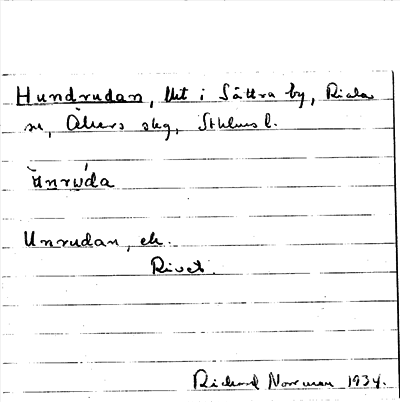 Hundrudan, lht i Sättra by, Riala
sn, Åkers skg, Sthlms l.
Unrudan, ek.
Rivet.
Rickard Norrman 1934.